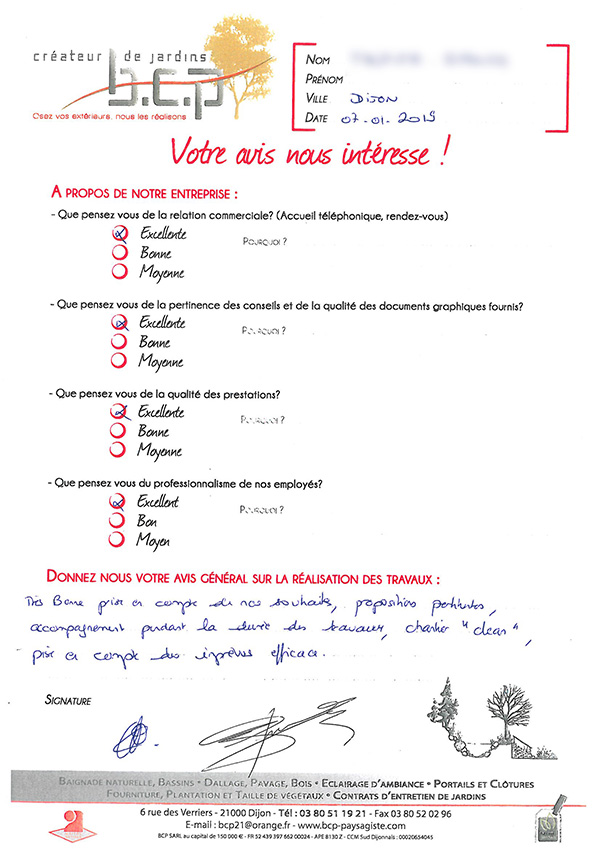 créateur de jardins
b.c.p
Osez vos extérieurs, nous les réalisons
NOM
PRÉNOM
VILLE DIJON
DATE 07-01-2015
Votre avis nous intéresse !
A PROPOS DE NOTRE ENTREPRISE :
- Que pensez vous de la relation commerciale? (Accueil téléphonique, rendez-vous)
Excellente
POURQUOI ?
Bonne
Moyenne
- Que pensez vous de la pertinence des conseils et de la qualité des documents graphiques fournis?
Excellente
POURQUOI ?
Bonne
Moyenne
- Que pensez vous de la qualité des prestations?
Excellente
POURQUOI ?
Bonne
Moyenne
- Que pensez vous du professionnalisme de nos employés?
Excellent
POURQUOI ?
Bon
Moyen
DONNEZ NOUS VOTRE AVIS GÉNÉRAL SUR LA RÉALISATION DES TRAVAUX :
Très Bonne prise en compte de nos souhaits, propositions pertinentes,
accompagnement pendant la durée des travaux, chantier "clean",
prise en compte des imprévus efficace.
SIGNATURE
BAIGNADE NATURELLE, BASSINS • DALLAGE, PAVAGE, BOIS • ECLAIRAGE D'AMBIANCE • PORTAILS ET CLÔTURES
FOURNITURE, PLANTATION ET TAILLE DE VÉGÉTAUX • CONTRATS D'ENTRETIEN DE JARDINS
6 rue des Verriers - 21000 Dijon - Tél : 03 80 51 19 21 - Fax 03 80 52 02 96
E-mail : bcp21@orange.fr - www.bcp-paysagiste.com
BCP SARL au capital de 150 000 € - FR 52 439 397 662 00024 - APE 8130 Z - CCM Sud Dijonnais : 00020654045